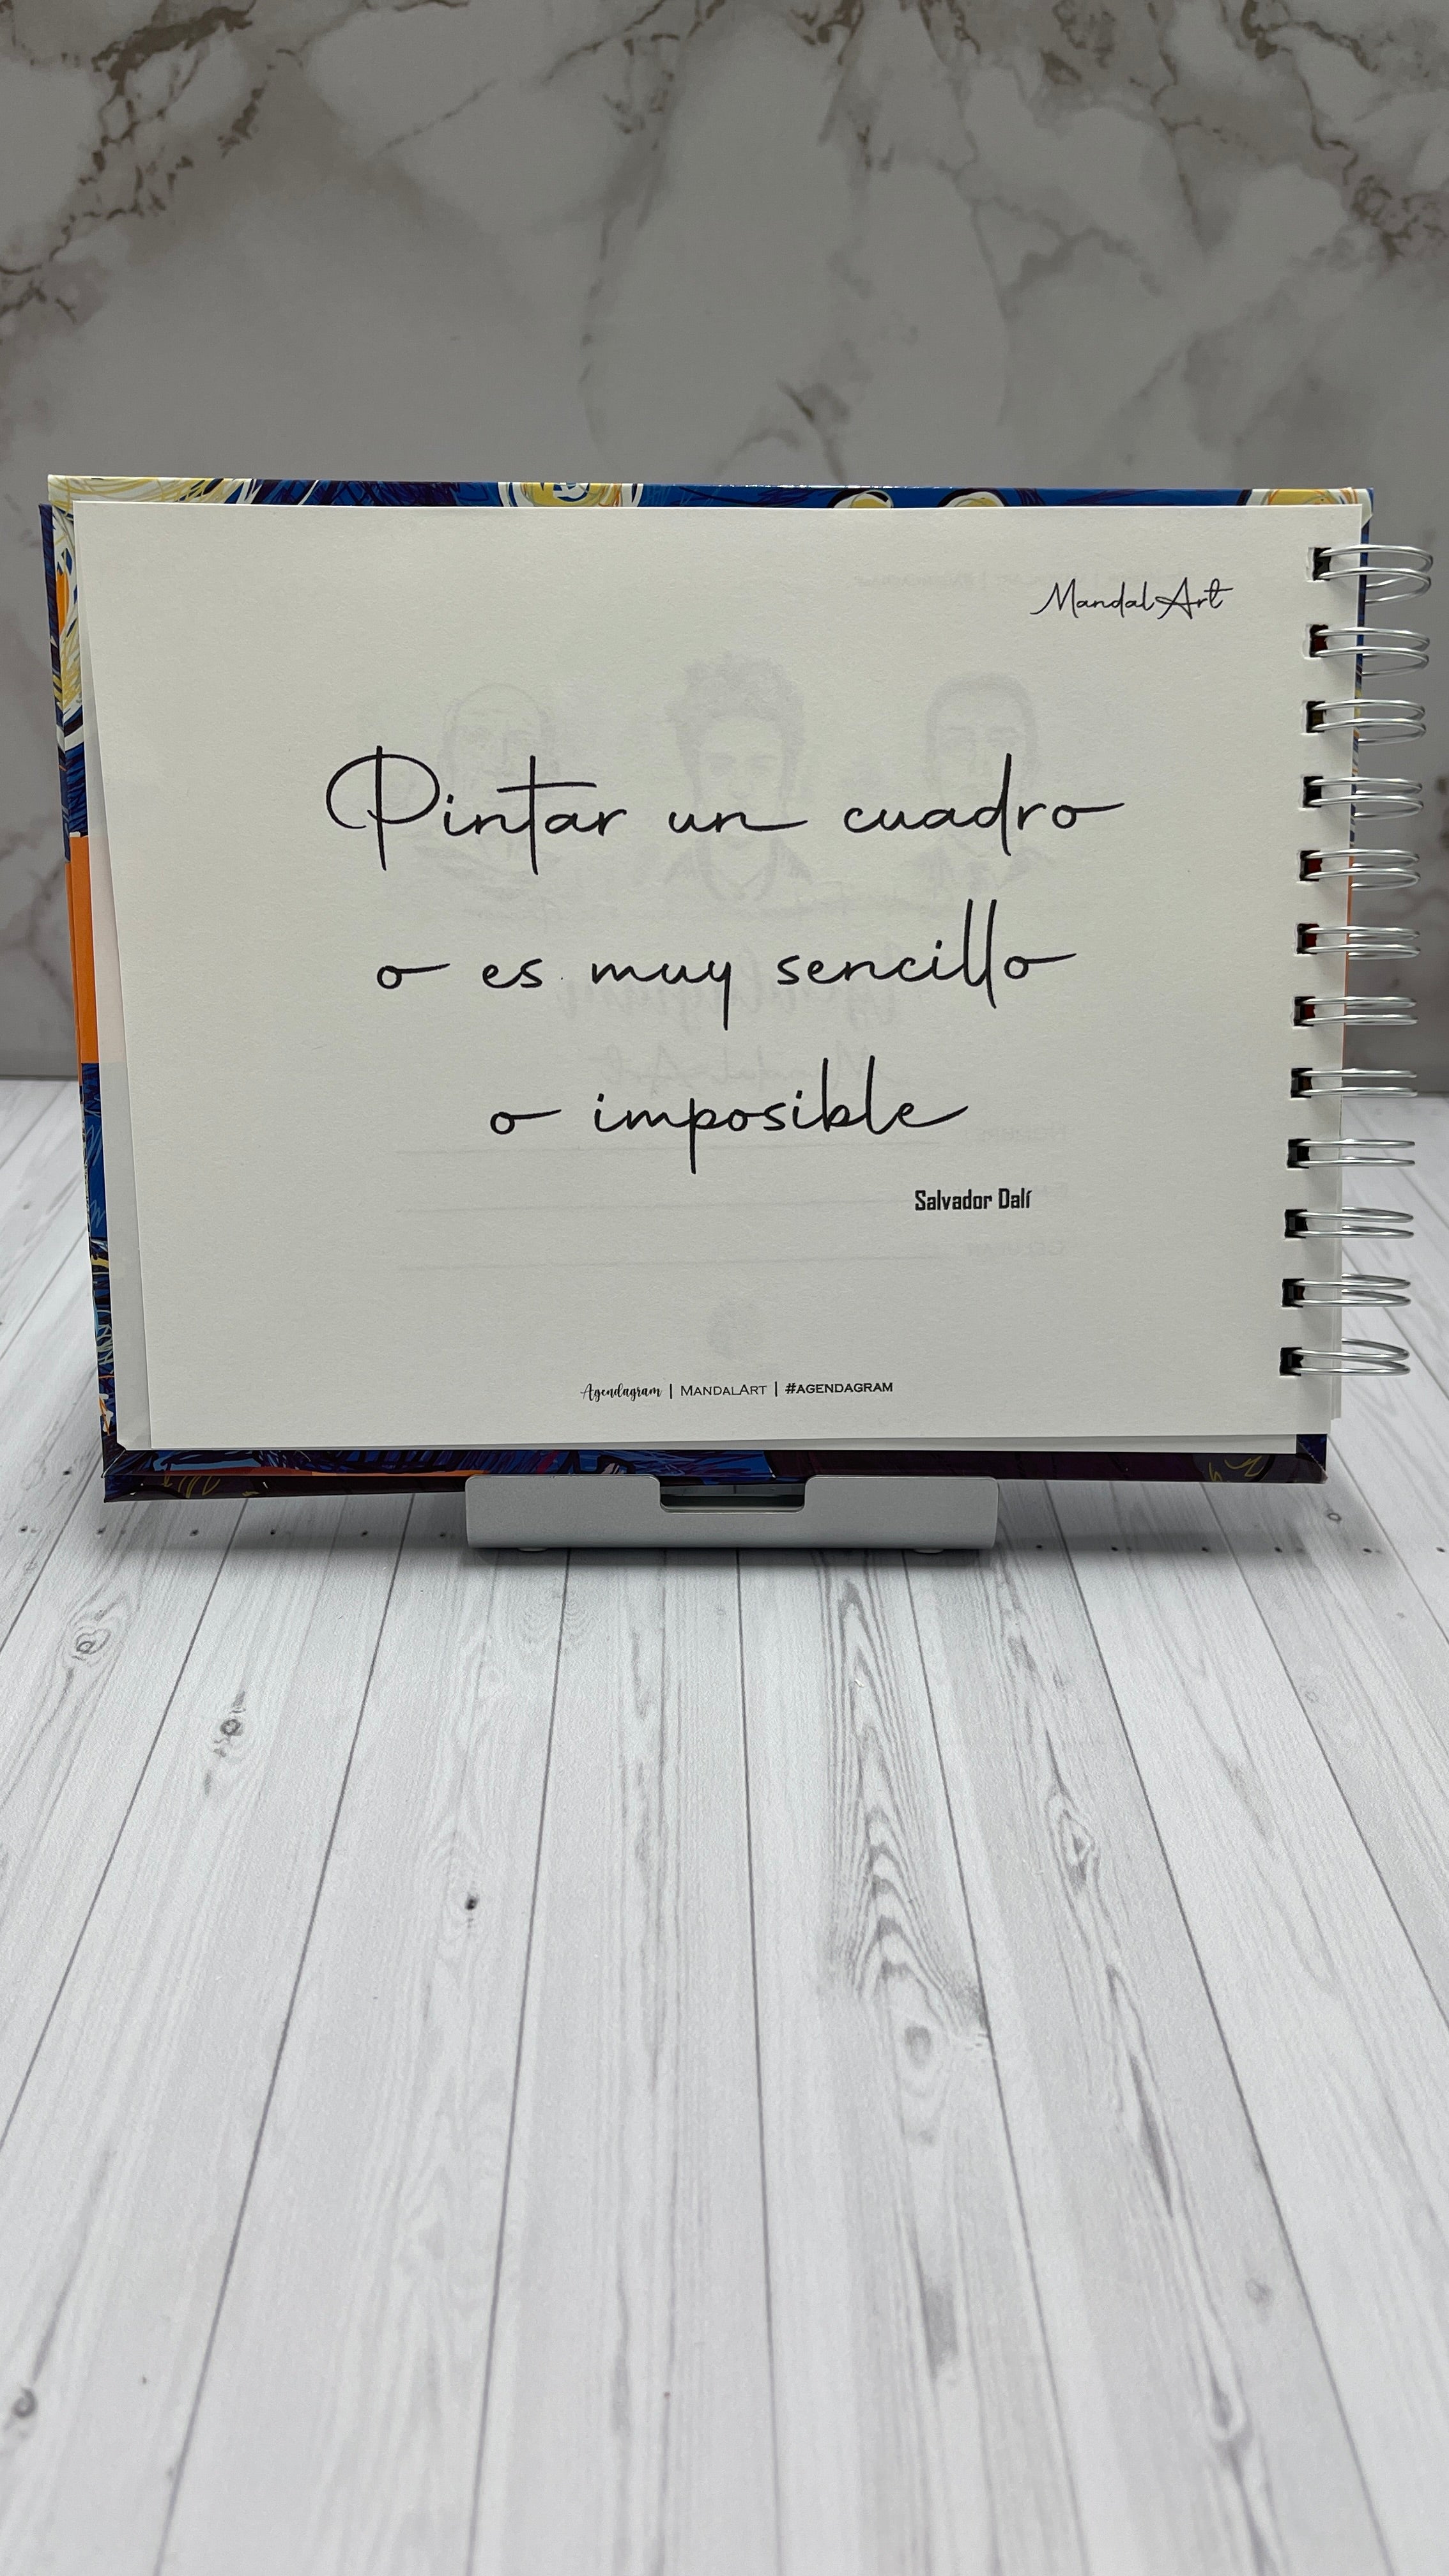 MandalArt
Pintar un cuadro
o es muy sencillo
o imposible
Salvador Dalí
Agendagram | MANDALART | #AGENDAGRAM